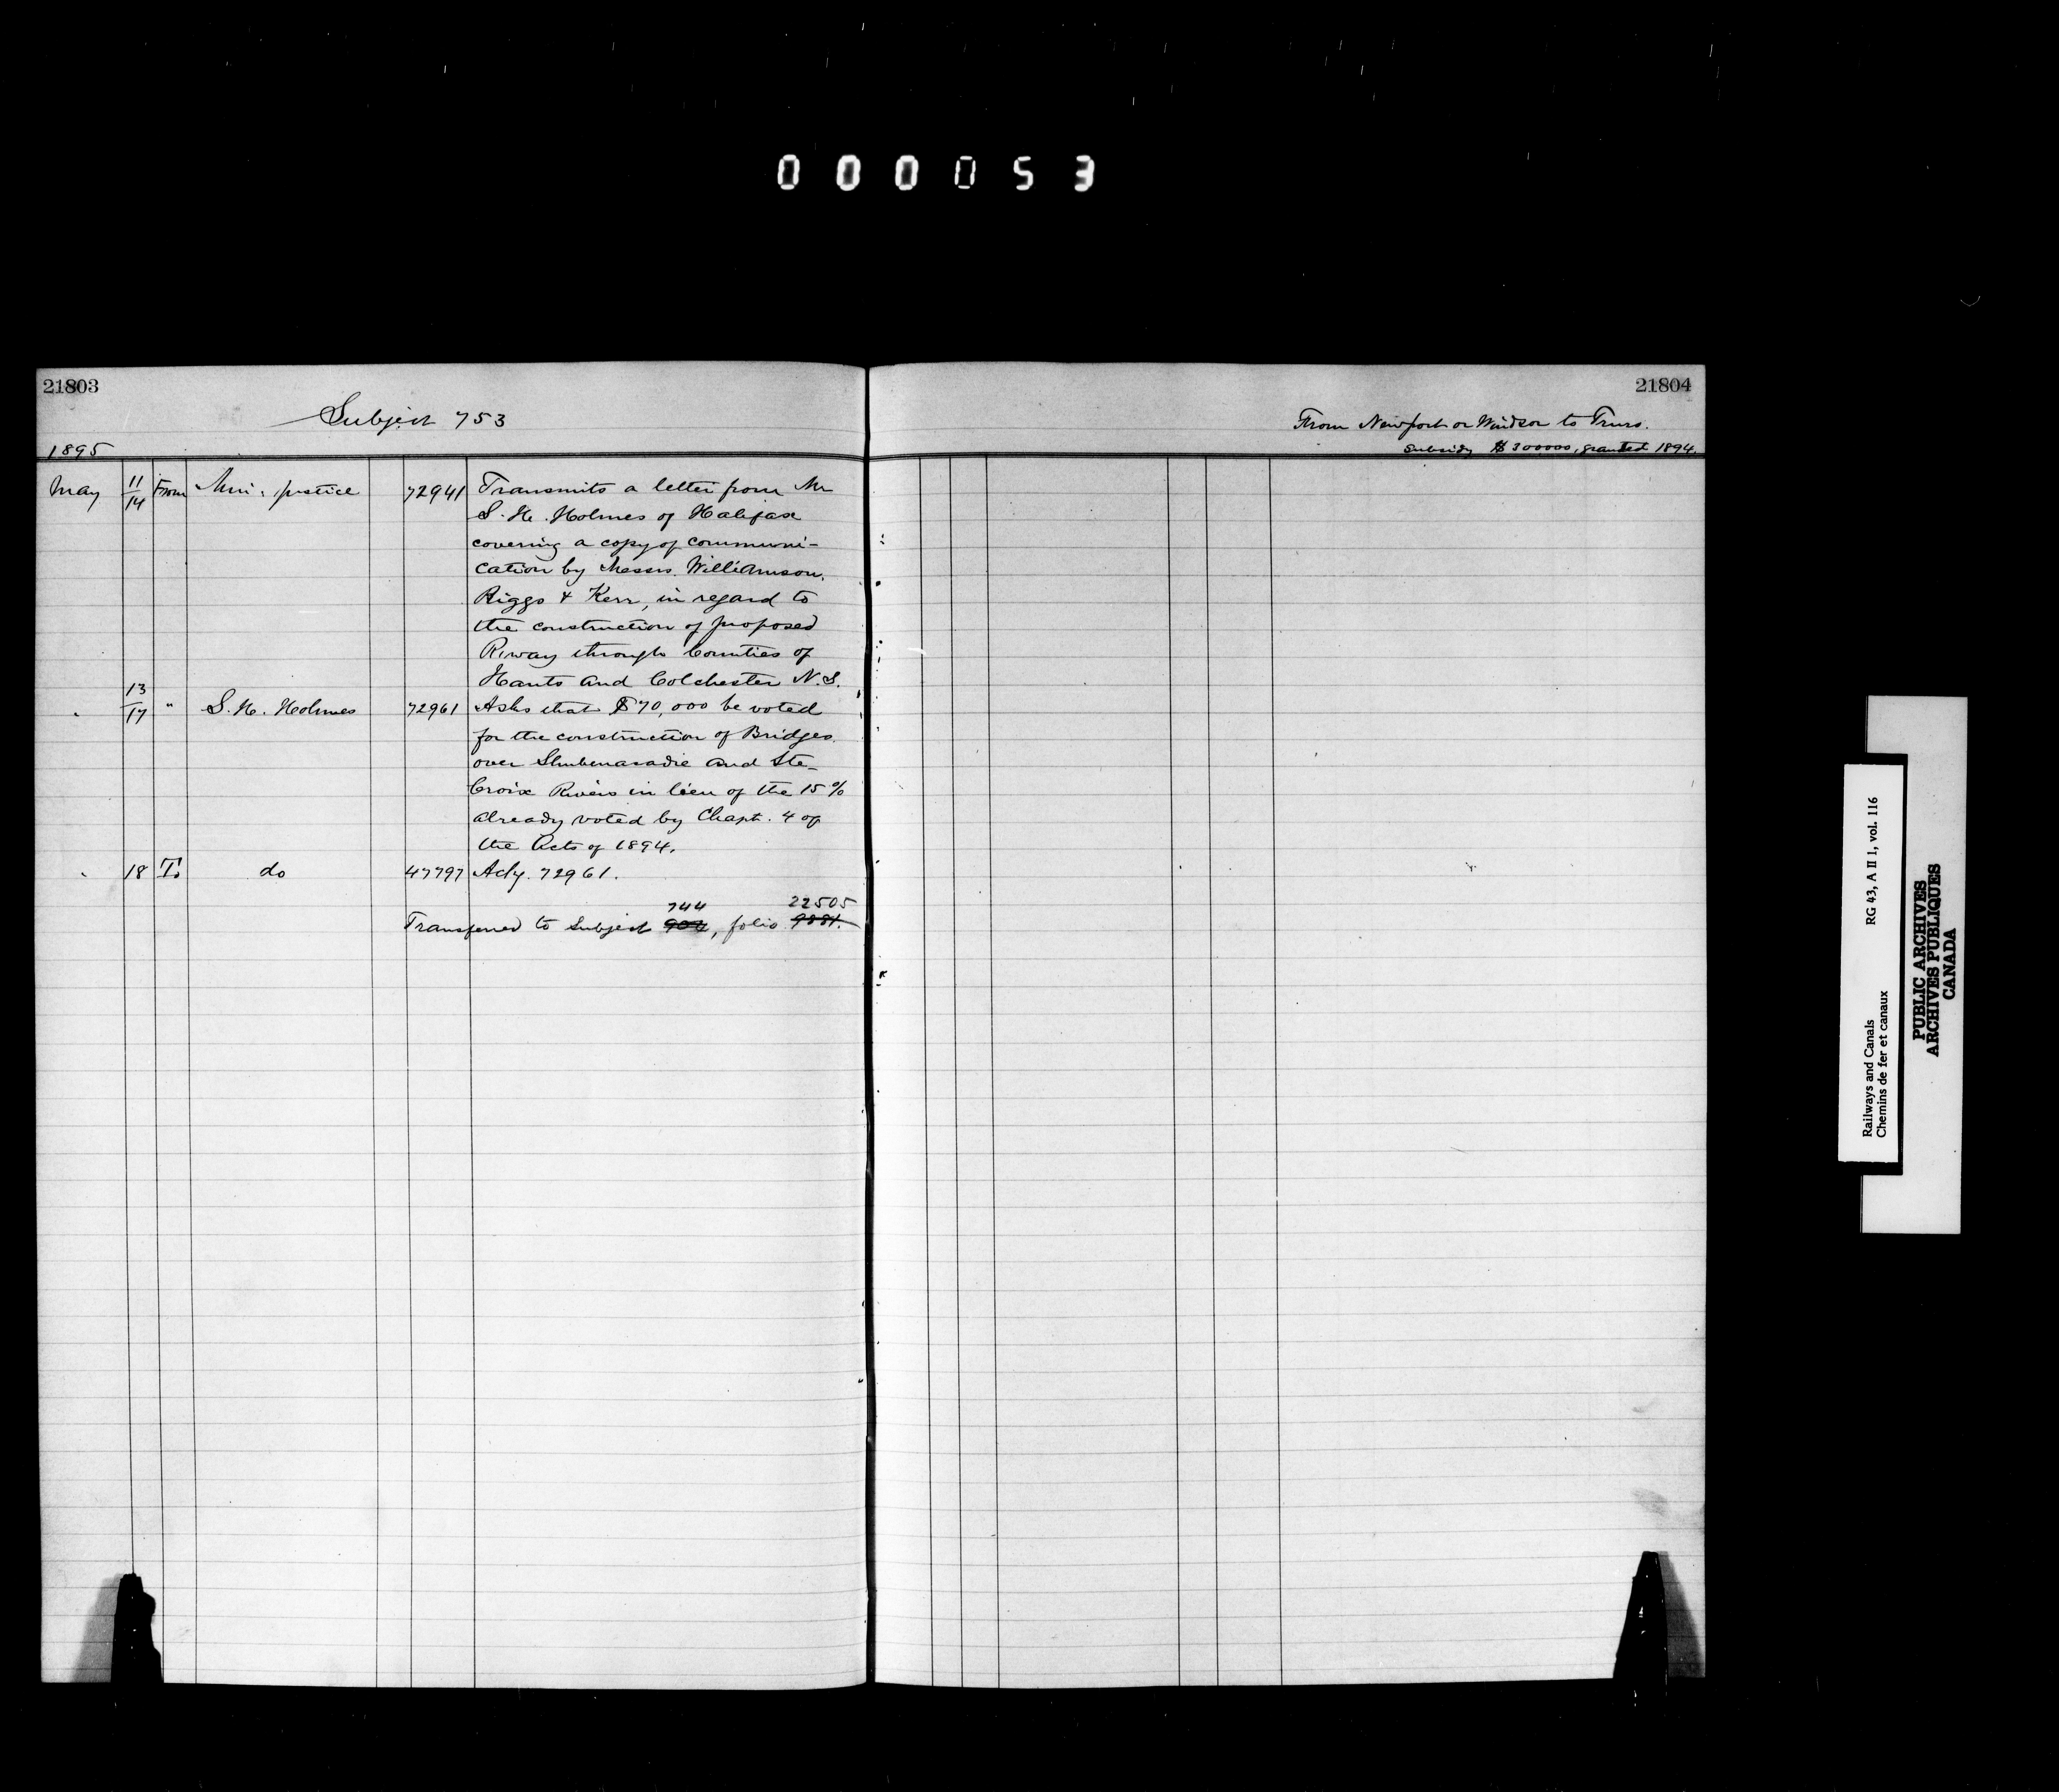 000053
21803
21804
Subject 753
From Newport or Windsor to Truro.
Subsidy $300000, granted 1894.
1895
May 11/14 From Min. Justice 72941 Transmits a letter from Mr
S. H. Holmes of Halifax
covering a copy of communi-
cation by Messrs. Williamson,
Riggs & Kerr, in regard to
the construction of proposed
R.way through Counties of
Hants and Colchester N.S.
" 13/17 " S. H. Holmes 72961 Asks that $70,000 be voted
for the construction of Bridges
over Shubenacadie and Ste-
Croix Rivers in lieu of the 15%
already voted by Chapt. 4 of
the Acts of 1894.
" 18 To do 47797 Ackg. 72961.
744 22505
Transferred to Subject 902, folio 9881.
Railways and Canals RG 43, A II 1, vol. 116
Chemins de fer et canaux
PUBLIC ARCHIVES
ARCHIVES PUBLIQUES
CANADA